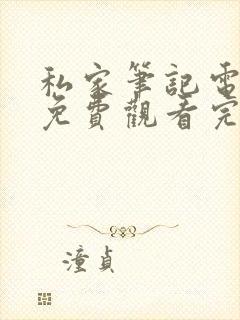 私家筆記電
免費觀看完
潼貞